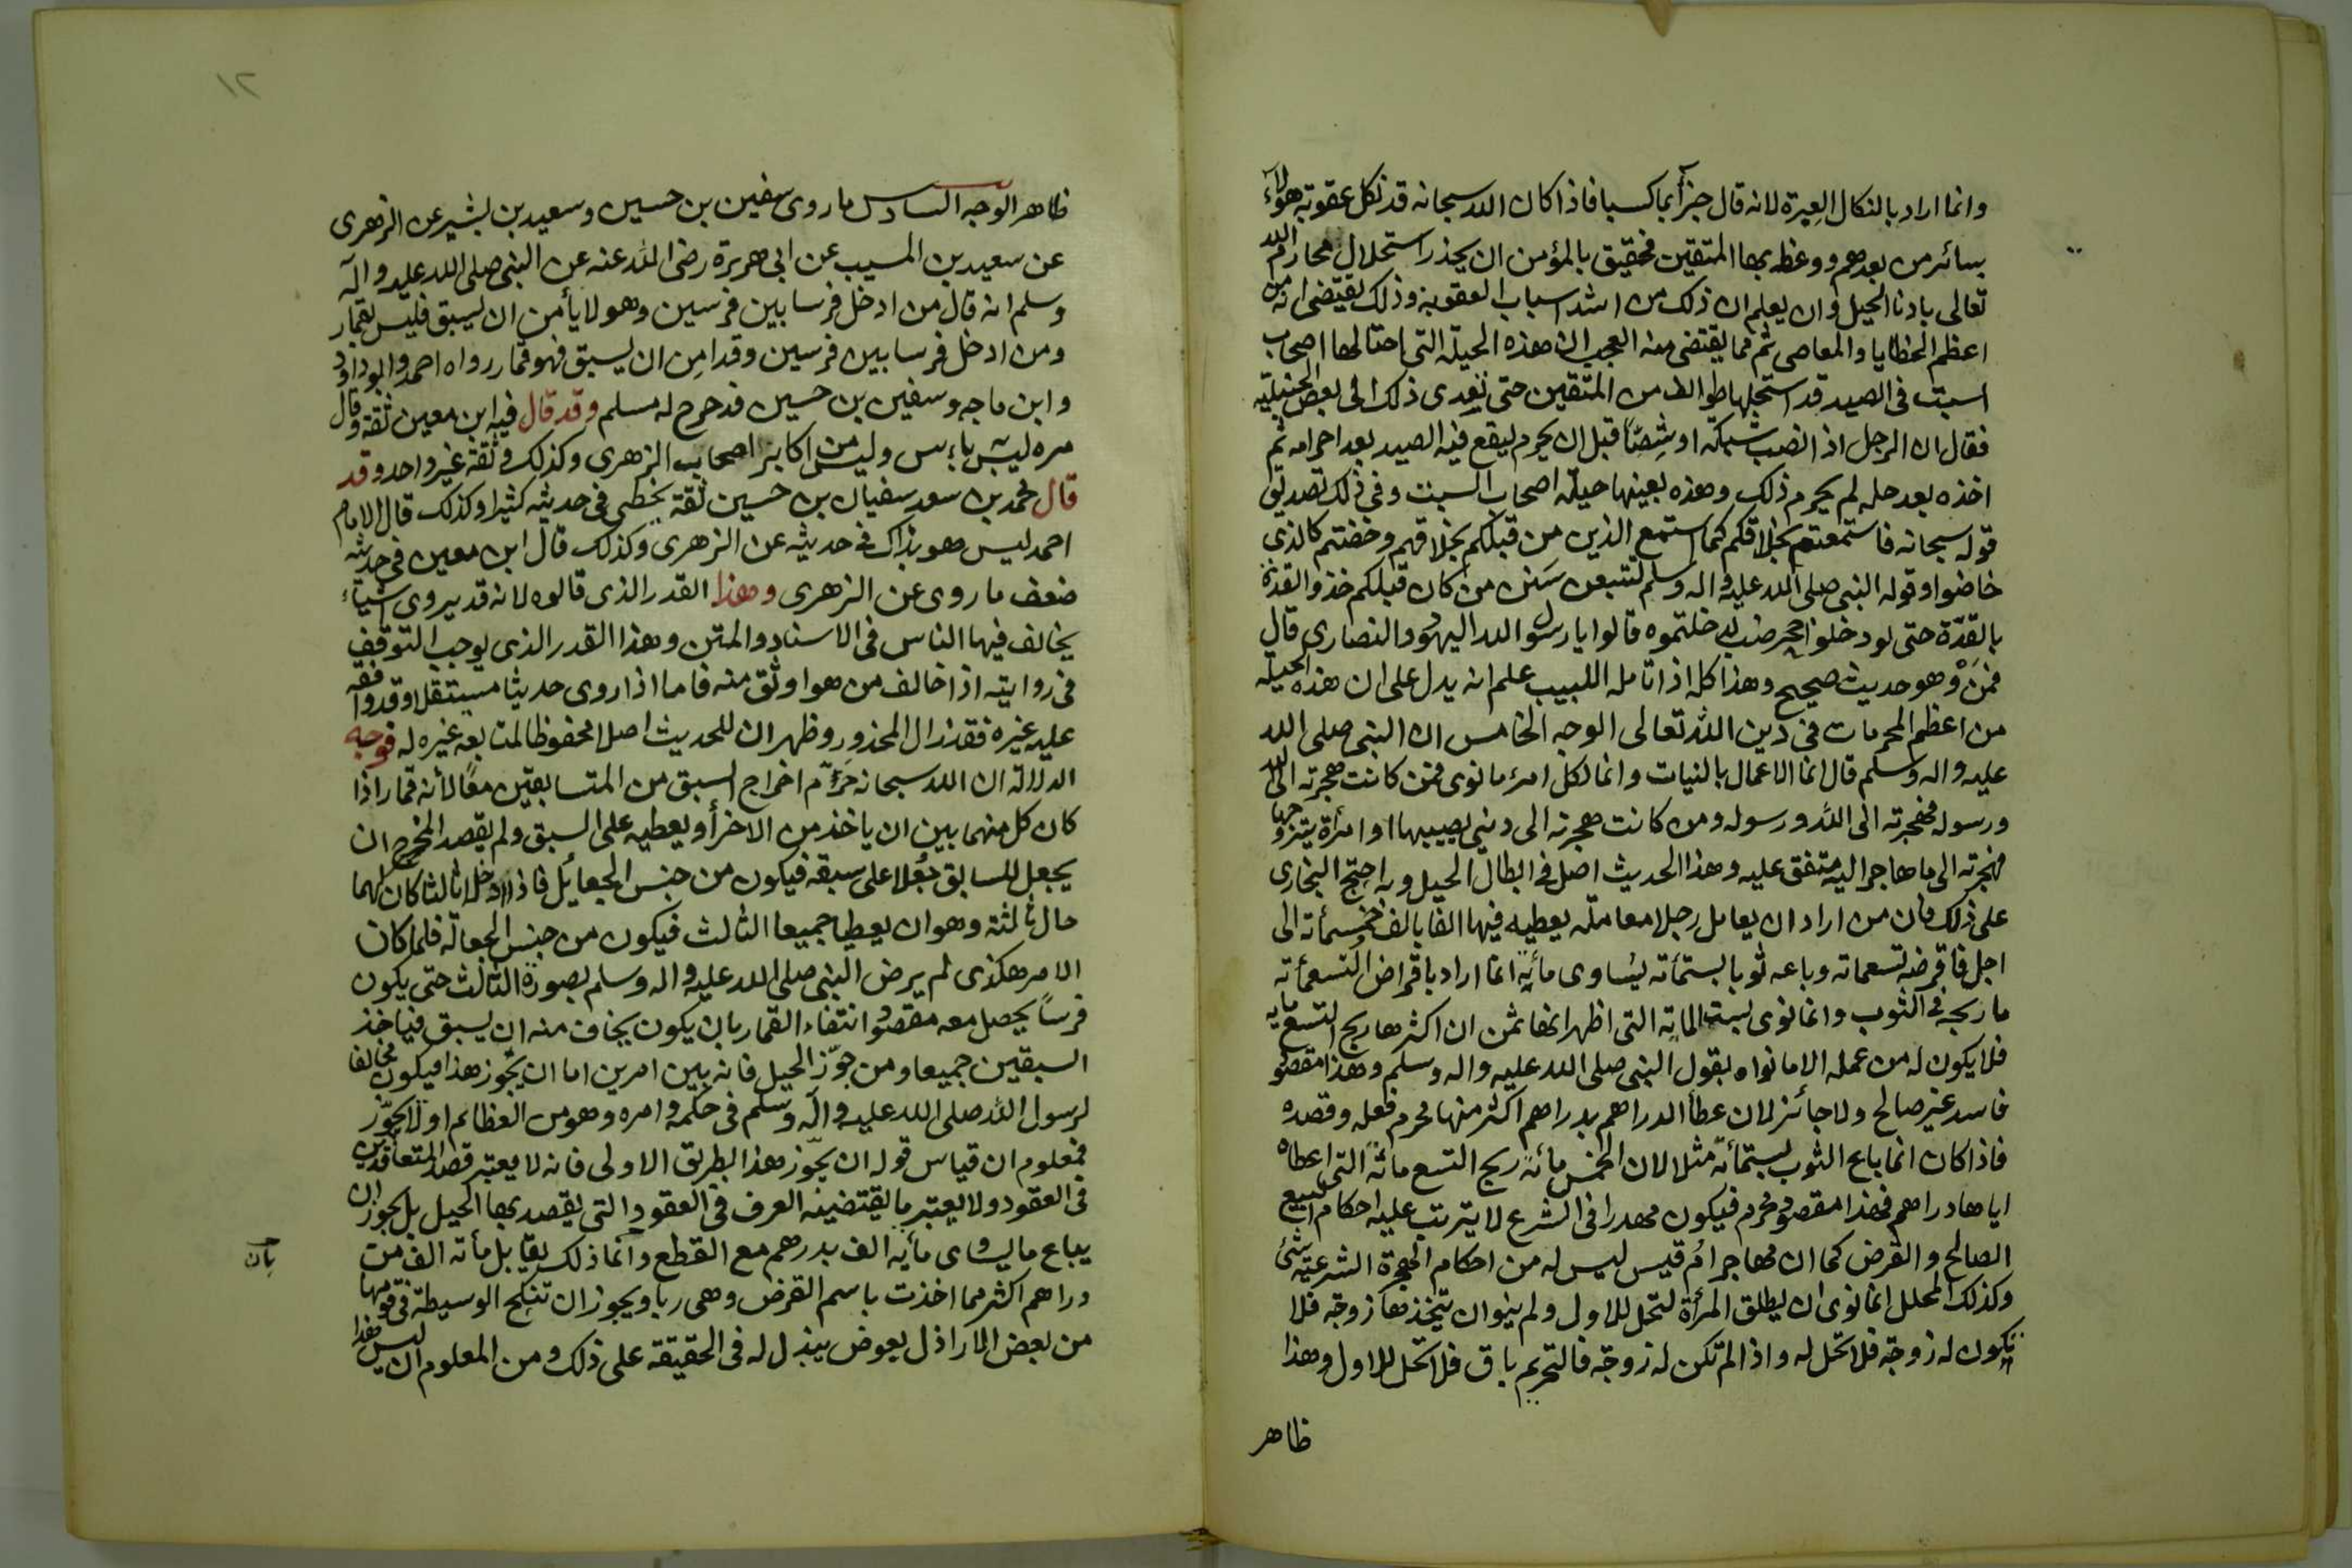 وانما اراد بالنكال العِبرة لانه قال جزأ بما كسبا فاذا كان الله سبحانه قد نكل عقوبته هؤلآء
سائر من بعدهم ووعظ بها المتقين فحقيق بالمؤمن ان يحذر استحلال محارم الله
تعالى بادنا الحيل وان يعلم ان ذلك من اشد اسباب العقوبة وذلك يقتضى انه من
اعظم الخطايا والمعاصى ثم مما يقتضى منه العجب ان هذه الحيلة التى احتالها اصحاب
السبت فى الصيد قد استحلها طوائف من المتقين حتى تعدى ذلك الى بعض الحنبلية
فقال ان الرجل اذا نصب شبكة او شِصًّا قبل ان يحرم ليقع فيه الصيد بعد احرامه ثم
اخذه بعد حله لم يحرم ذلك وهذه بعينها حيلة اصحاب السبت وفى ذلك تصديق
قوله سبحانه فاستمعتم بخلاقكم كما استمع الذين من قبلكم بخلاقهم وخضتم كالذى
خاضوا وقوله النبى صلى الله عليه واله وسلم لتتبعن سَنن من كان قبلكم حذو القذة
بالقذة حتى لو دخلوا جحر ضب لدخلتموه قالوا يا رسول الله اليهود والنصارى قال
فمَنْ وهو حديث صحيح وهذا كله اذا تامله اللبيب علم انه يدل على ان هذه الحيلة
من اعظم المحرمات فى دين الله تعالى الوجه الخامس ان النبى صلى الله
عليه واله وسلم قال انما الاعمال بالنيات وانما لكل امرئ ما نوى فمن كانت هجرته الى الله
ورسوله فهجرته الى الله ورسوله ومن كانت هجرته الى دنيى يصيبها او امرأة يتزوجها
فهجرته الى ما هاجر اليه متفق عليه وهذا الحديث اصل فى ابطال الحيل وبه احتج البخارى
على ذلك فان من اراد ان يعامل رجلا معاملة يعطيه فيها الفا بالف وخمسمأته الى
اجل فاقرضه تسعماته وباعه ثوبا بستمأته يساوى مأية انما اراد باقراض التسعمأته
ما ربحه فى الثوب وانما نوى بستـ الماتة التى اظهر انها ثمن ان اكثرها ربح التسع مايه
فلا يكون له من عمله الا ما نواه بقول النبى صلى الله عليه واله وسلم وهذا مقصود
فاسد غير صالح ولا جائز لان عطأ الدراهم بدراهم اكثر منها محرم فعله وقصده
فاذا كان انما باع الثوب بستمأته مثلا لان الخمس مائة ربح التسع مائة التى اعطاه
اياها دراهم فهذا مقصود محرم فيكون مهدرا فى الشرع لا يترتب عليه احكام البيع
الصالح والقرض كما ان مهاجر اُم قيس ليس له من احكام الهجرة الشرعية شئ
وكذلك المحلل انما نوى ان يطلق المرأة لتحل للاول ولم ينوان يتخذها زوجة فلا
تكون له زوجة فلا تحل له واذا لم تكن له زوجة فالتحريم باق فلا تحل للاول وهذا
ظاهر
١٢
ظاهر الوجه السادس ما روى سفين بن حسين وسعيد بن بشير عن الزهرى
عن سعيد بن المسيب عن ابى هريرة رضى الله عنه عن النبى صلى الله عليه واله
وسلم انه قال من ادخل فرسا بين فرسين وهو لا يأمن ان يسبق فليس بقمار
ومن ادخل فرسا بين فرسين وقد امِن ان يسبق فهو قمار رواه احمد وابو داود
وابن ماجه وسفين بن حسين قد خرج له مسلم وقد قال فيه ابن معين ثقة وقال
مره ليس به باءس وليس من اكابر اصحاب الزهرى وكذلك وثقة غير واحد وقد
قال محمد بن سعد سفيان بن حسين ثقة يخطى فى حديثه كثيرا وكذلك قال الامام
احمد ليس هو بذاك فى حديثه عن الزهرى وكذلك قال ابن معين فى حديثه
ضعف ما روى عن الزهرى وهذا القدر الذى قالوه لانه قد يروى اشيآء
يخالف فيها الناس فى الاسناد والمتن وهذا القدر الذى يوجب التوقف
فى روايته اذا خالف من هو اوثق منه فاما اذا روى حديثا مستقلا وقد وافقه
عليه غيره فقد زال المحذور وظهر ان للحديث اصلا محفوظا لمتابعة غيره له فوجه
الدلالة ان الله سبحانه حَرَّم اخراج السبق من المتسابقين معًا لأنه قمار اذا
كان كل منهما بين ان ياخذ من الاخر أو يعطيه على السبق ولم يقصد المخرج ان
يجعل للسابق جُعلا على سبقه فيكون من جنس الجعايل فاذا ادخلا ثالثا كان لهما
حال ثالثة وهو ان يعطيا جميعا الثالث فيكون من جنس الجعالة فلما كان
الامر هكذى لم يرض النبى صلى الله عليه واله وسلم بصورة الثالث حتى يكون
فرسًا يحصل معه مقصود انتفاء القمار بان يكون يخاف منه ان يسبق فياخذ
السبقين جميعا ومن جوّز الحيل فانه بين امرين اما ان يجوز هذا فيكون مخالفا
لرسول الله صلى الله عليه واله وسلم فى حكمه وامره وهو من العظائم اولا يجوّز
فمعلوم ان قياس قوله ان يجّوز هذا بطريق الاولى فانه لا يعتبر قصد المتعاقدين
فى العقود ولا يعتبر ما يقتضيه العرف فى العقود التى يقصد بها الحيل بل يجوز ان
يباع ما يساوى مأيه الف بدرهم مع القطع وانما ذلك يقابل مأته الف من
بان
دراهم اكثر مما اخذت باسم القرض وهى ربا ويجوز ان تنكح الوسيطة فى قومها
من بعض الاراذل بعوض يبذل له فى الحقيقة على ذلك ومن المعلوم ان ليس هذا